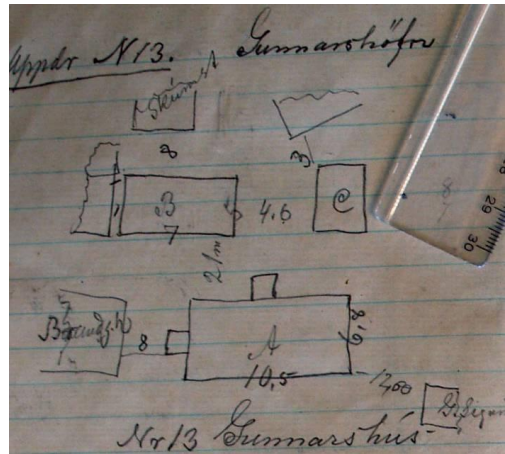 Uppdr N 13. Gunnarshöfn
Skúmst
8
3
B
7
5
4.6
C
21 m
8
A
10,5
6,8
12,00
Nr 13 Gunnarshús
29
30